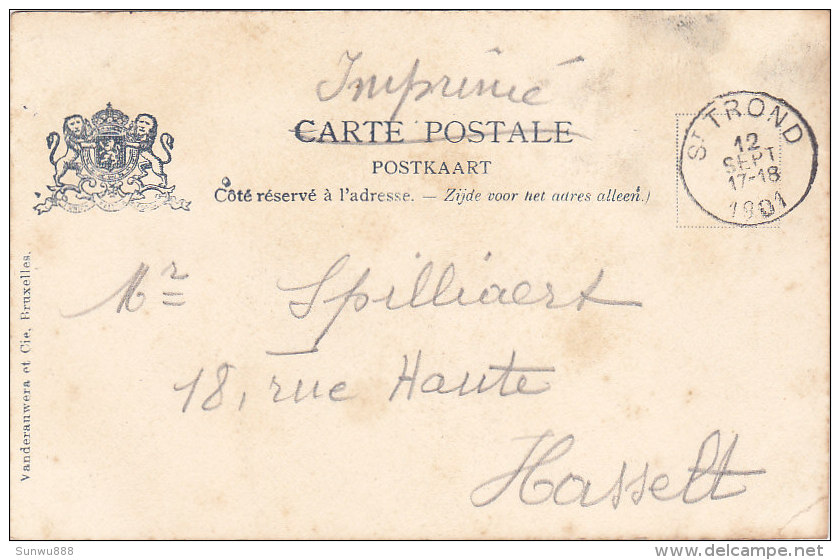 Imprimé
CARTE POSTALE
POSTKAART
Côté réservé à l'adresse. — Zijde voor het adres alleen.)
ST TROND
12
SEPT
17-18
1901
Mr Spilliaert
18, rue Haute
Hasselt
Vanderauwera et Cie, Bruxelles.
Sunwu888
delcampe.net